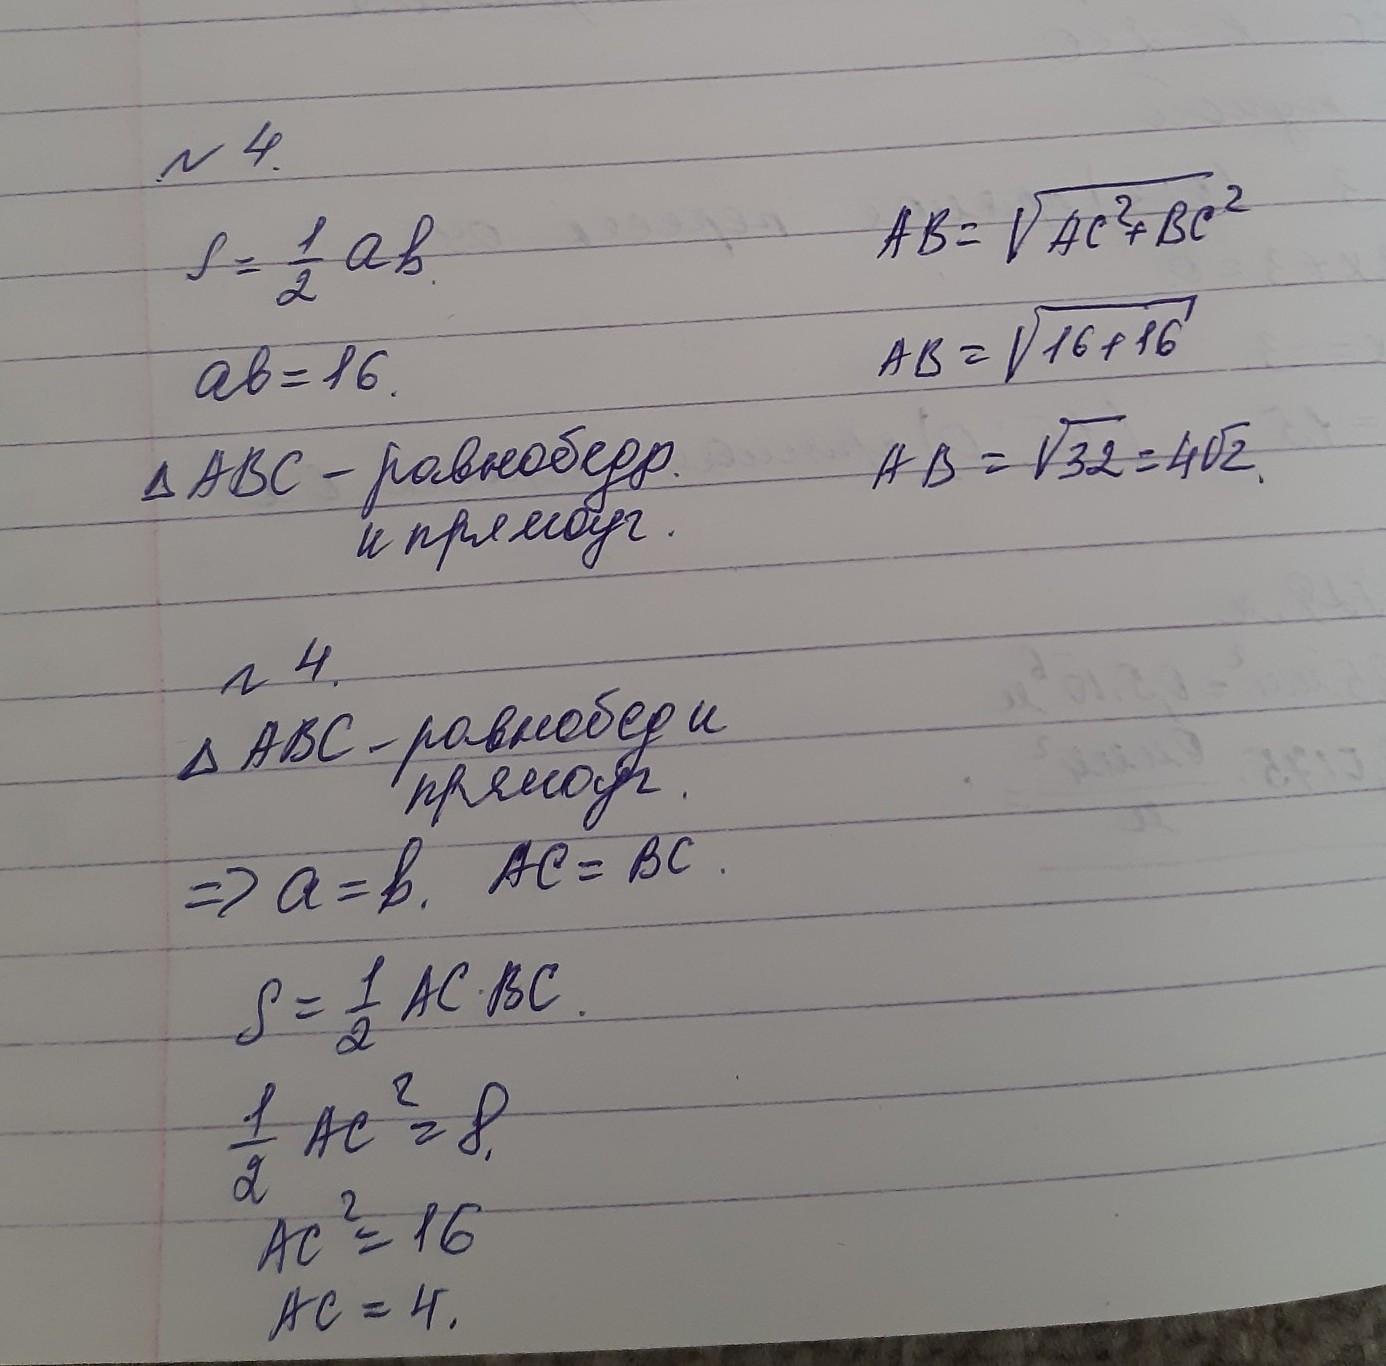 № 4.
S = 1/2 ab.
ab = 16.
△ ABC – равнобедр.
и прямоуг.
AB = √(AC² + BC²)
AB = √(16 + 16)
AB = √32 = 4√2.
№ 4.
△ ABC – равнобед и
прямоуг.
=> a = b. AC = BC.
S = 1/2 AC · BC.
1/2 AC² = 8.
AC² = 16
AC = 4.